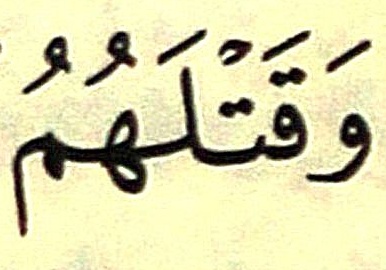 وَقَتْلَهُمُ